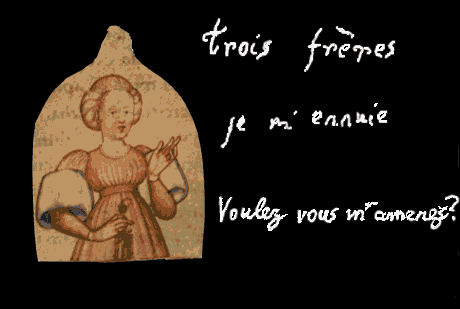 trois frères
je m'ennuie
Voulez vous m'amenez?